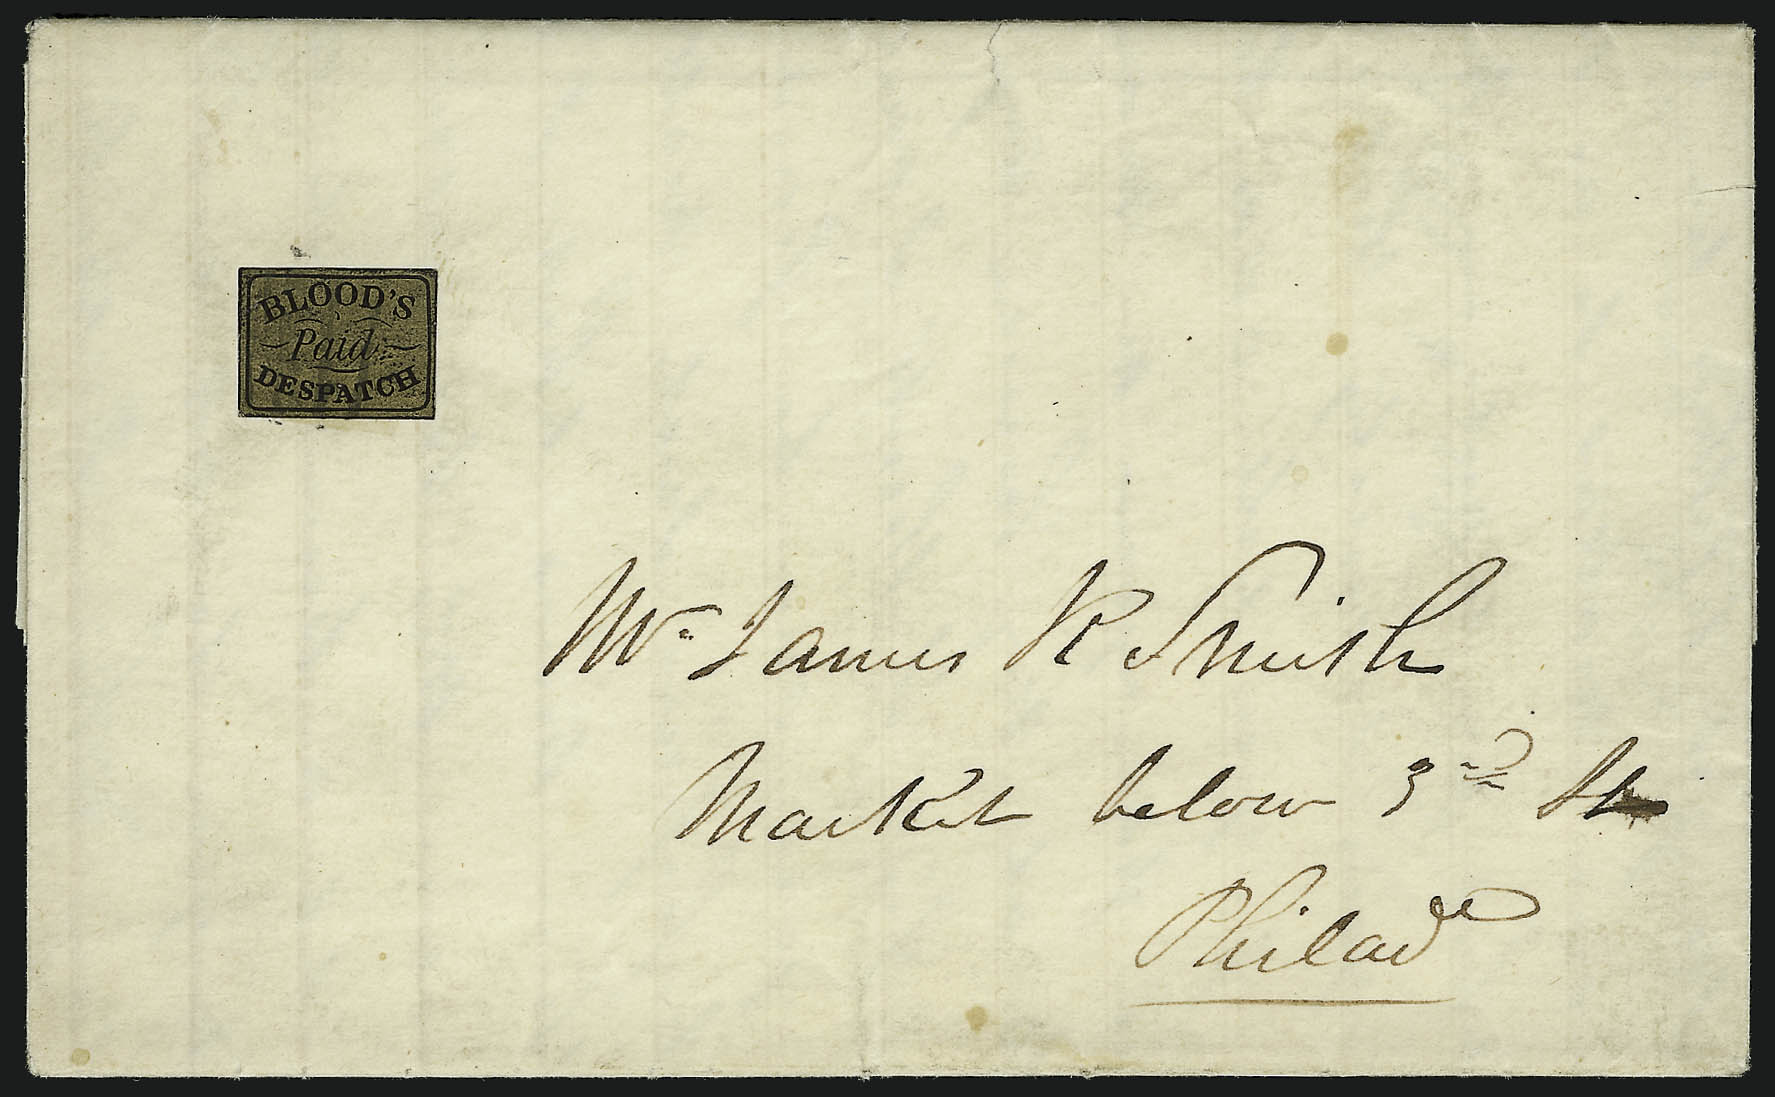 BLOOD'S
Paid
DESPATCH
Mr. James K Smith
Market below 3rd St
Philada